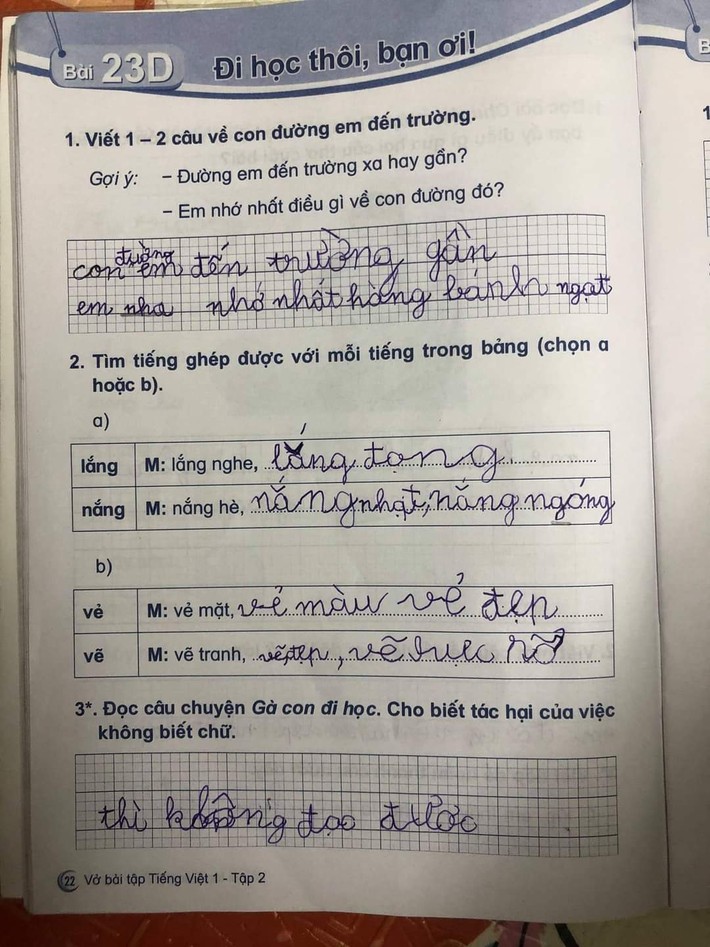 Bài 23D Đi học thôi, bạn ơi!
1. Viết 1 – 2 câu về con đường em đến trường.
Gợi ý: – Đường em đến trường xa hay gần?
– Em nhớ nhất điều gì về con đường đó?
con đường em đến trường gần
em nha nhớ nhất hàng bánh ngạt
2. Tìm tiếng ghép được với mỗi tiếng trong bảng (chọn a
hoặc b).
a)
lắng M: lắng nghe, lắng đọng
nắng M: nắng hè, nắng nhạt, nắng ngóng
b)
vẻ M: vẻ mặt, vẻ màu vẻ đẹp
vẽ M: vẽ tranh, vẽ đẹp, vẽ rỡ
3*. Đọc câu chuyện Gà con đi học. Cho biết tác hại của việc
không biết chữ.
thì không đạo được
22 Vở bài tập Tiếng Việt 1 - Tập 2